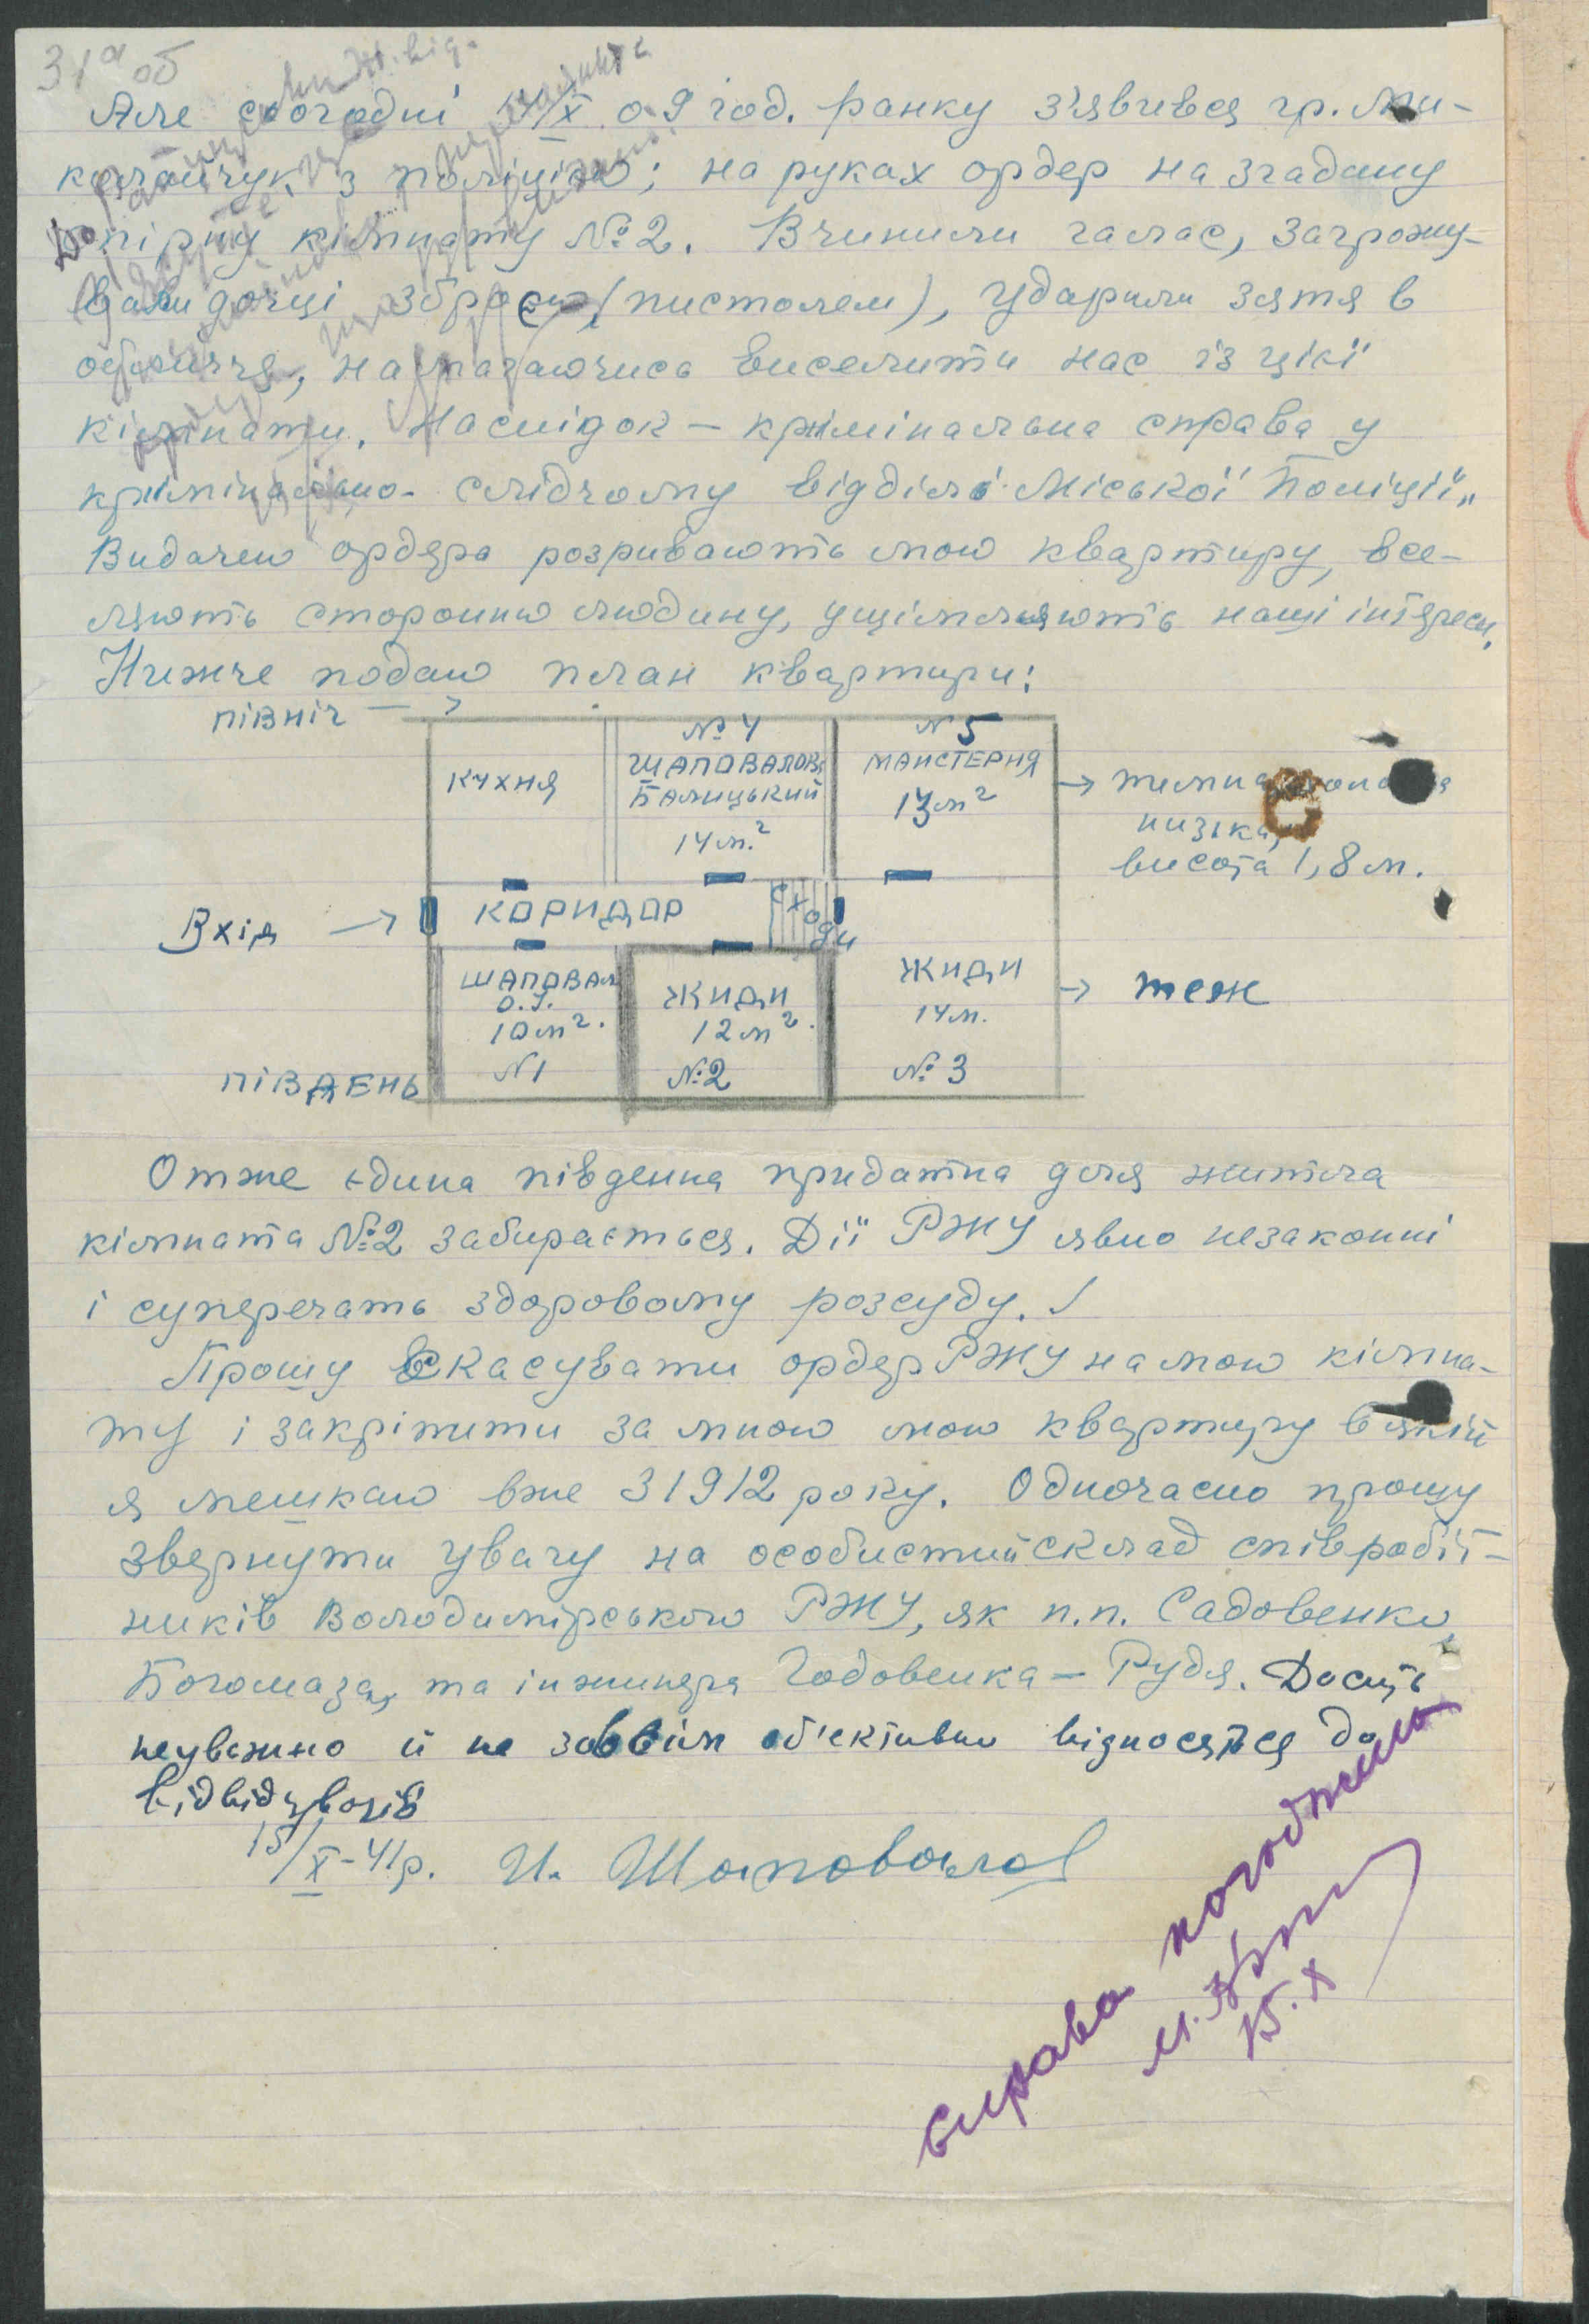 31а об
Але сьогодні 14/X о 9 год. ранку з'явився гр. Ми-
колайчук з поліцією; на руках ордер на згадану
допіру кімнату №2. Вчинили галас, загрожу-
вали дочці зброєю (пистолем), ударили зятя в
обличчя, намагаючись виселити нас із цієї
кімнати. Наслідок – кримінальна справа у
кримінально-слідчому відділі Міської Поліції„
Видачею ордера розривають мою квартиру, все-
ляють сторонню людину, ущімляють наші інтереси.
Нижче подаю план квартири:
ПІВНІЧ
КУХНЯ
№ 4
ШАПОВАЛОВ
БАЛИЦЬКИЙ
14 м.²
№ 5
МАЙСТЕРНЯ
13 м²
→ темна
низька,
висота 1,8 м.
Вхід →
КОРИДОР
сходи
ШАПОВАЛ
О.І.
10 м².
№1
ЖИДИ
12 м².
№2
ЖИДИ
14 м.
№ 3
→ теж
ПІВДЕНЬ
Отже єдина південна придатна для житла
кімната №2 забирається. Дії РЖУ явно незаконні
і суперечать здоровому розсуду.
Прошу скасувати ордер РЖУ на мою кімна-
ту і закріпити за мною мою квартиру в якій
я мешкаю вже з 1912 року. Одночасно прошу
звернути увагу на особистий склад співробіт-
ників Володимірського РЖУ, як п.п. Садовенко,
Богомаза, та інжинера Годовенка – Рудя. Досить
неуважно й не зовсім об'єктивно відносяться до
відвідувачів
15/X-41р. И. Шаповалов
справа погоджена
15.X